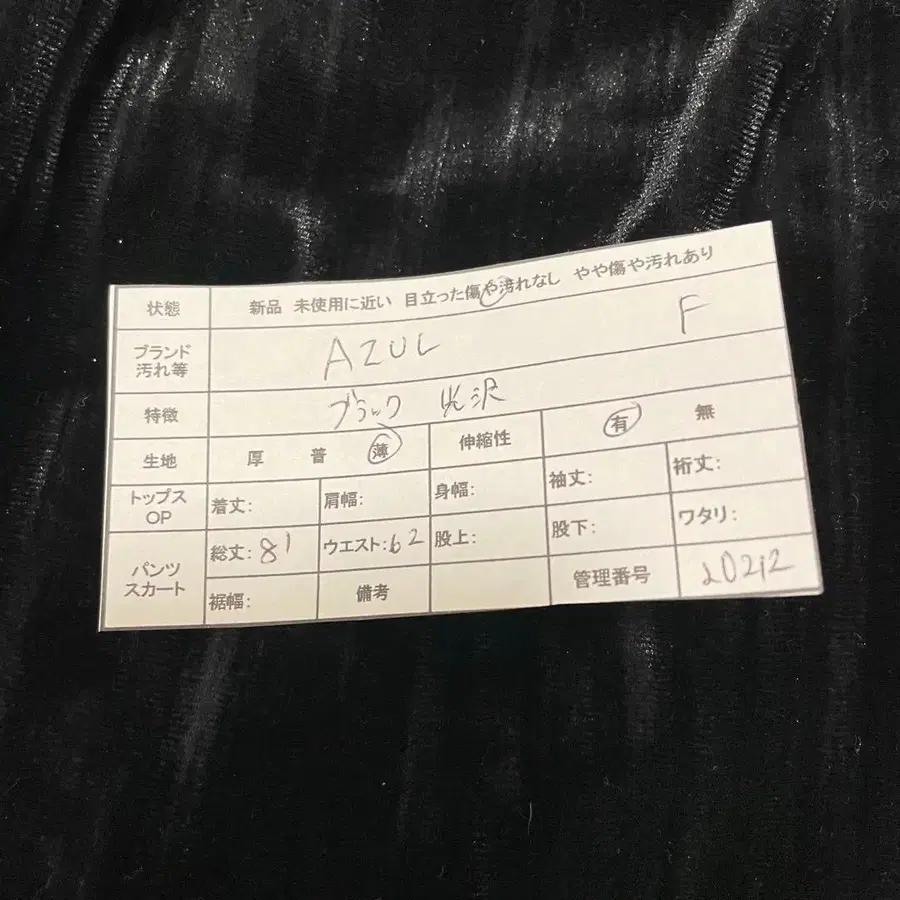 状態 新品 未使用に近い 目立った傷や汚れなし やや傷や汚れあり
ブランド 汚れ等 AZUL F
特徴 ブラック 光沢
生地 厚 普 薄 伸縮性 有 無
トップス OP 着丈: 肩幅: 身幅: 袖丈: 裄丈:
パンツ スカート 総丈:81 ウエスト:62 股上: 股下: ワタリ:
裾幅: 備考 管理番号